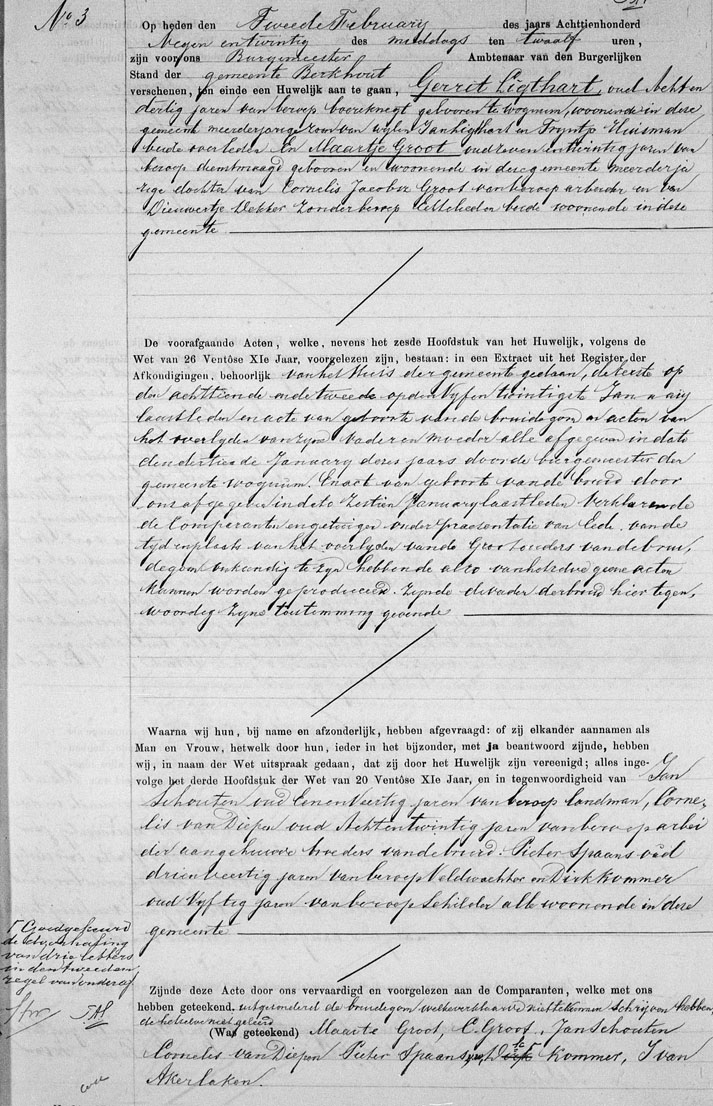 No 3
Op heden den Tweede February des jaars Achttienhonderd
Negen en twintig des middags ten twaalf uren,
zijn voor ons Burgmeester Ambtenaar van den Burgerlijken
Stand der gemeente Berkhout
verschenen, ten einde een Huwelijk aan te gaan, Gerrit Ligthart, oud Acht en
dertig jaren van beroep boereknegt gebooren te wognum, woonende in dese
gemeente meerderjarige zoon van wylen Jan Ligthart en Tryntje Huisman
beide overleden En Maartje Groot oud seven en twintig jaren van
beroep dienstmaagd gebooren en woonende in dese gemeente meerderja
rige dochter van Cornelis Jacobsz Groot van beroep arbeider en van
Dieuwertje Dekker zonder beroep Echtelieden beide woonende in dese
gemeente
De voorafgaande Acten, welke, nevens het zesde Hoofdstuk van het Huwelijk, volgens de
Wet van 26 Ventôse XIe Jaar, voorgelezen zijn, bestaan: in een Extract uit het Register der
Afkondigingen, behoorlijk van het Huis der gemeente gedaan, de eerste op
den achttiende en de tweede op den vyf en twintigste January
laastleden en acte van geboorte van de bruidegom en acten van
het overlyden van zyne vader en moeder alle afgegeven in dato
den dertiende January deses jaars door de burgemeester der
gemeente wognum. En act van geboorte van de bruid door
ons afgegeven in dato Zestien January laastleden Verklarende
de Comparanten en getuigen onder praesentatie van Eede van de
tyd en plaats van het overlyden van de Grootouders van de brui,
degom onkundig te zyn hebbende alzo van hetzelve geene acten
kunnen worden geproduceerd. Zynde de vader der bruid hier tegen,
woordig zyne toestemming gevende
Waarna wij hun, bij name en afzonderlijk, hebben afgevraagd: of zij elkander aannamen als
Man en Vrouw, hetwelk door hun, ieder in het bijzonder, met ja beantwoord zijnde, hebben
wij, in naam der Wet uitspraak gedaan, dat zij door het Huwelijk zijn vereenigd; alles inge-
volge het derde Hoofdstuk der Wet van 20 Ventôse XIe Jaar, en in tegenwoordigheid van Jan
Schouten oud Een en Veertig jaren van beroep landman, Corne-
lis van Diepen oud Acht en twintig jaren van beroep arbei
der aangehuwde broeders van de bruid. Pieter Spaans oud
drie en veertig jaren van beroep Veldwachter en Dirk Kommer
oud Vyftig jaren van beroep Schilder alle woonende in dese
gemeente
Goedgekeurd
de
van drie letters
in den tweeden
regel van onder af
Zijnde deze Acte door ons vervaardigd en voorgelezen aan de Comparanten, welke met ons
hebben geteekend. uitgesonderd de bruidegom welke verklaarde niet te kunnen schrijven hebben,
de hetzelve niet geleerd
(Was geteekend) Maartje Groot, C. Groot, Jan Schouten
Cornelis van Diepen Pieter Spaans, Kommer, J van
Akerlaken.